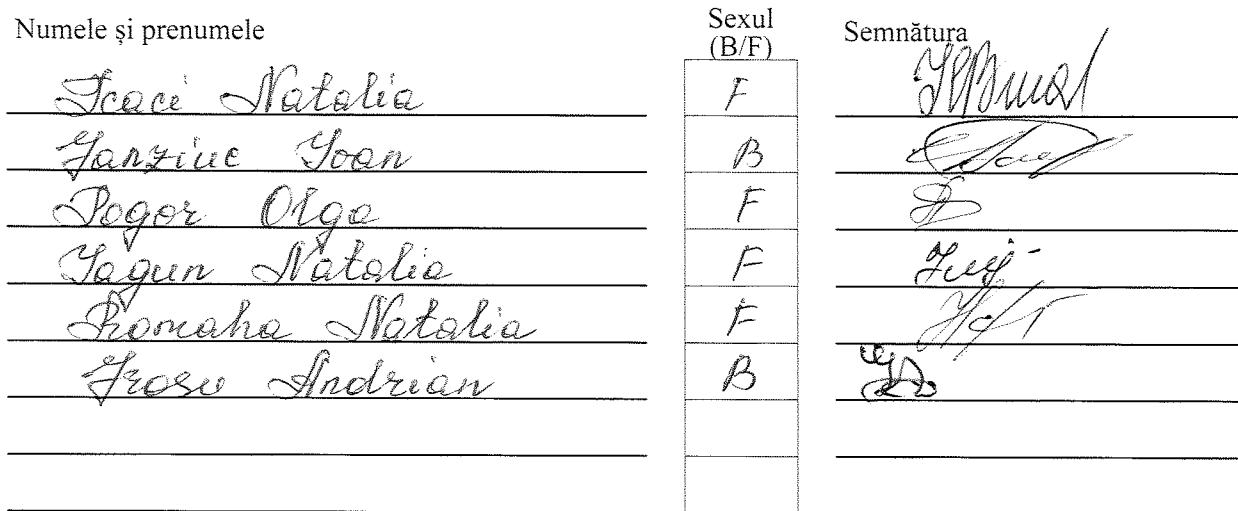 Numele și prenumele Sexul (B/F) Semnătura
Tcaci Natalia F
Ganziuc Ioan B
Pogor Olga F
Iagun Natalia F
Romaha Natalia F
Grosu Andrian B